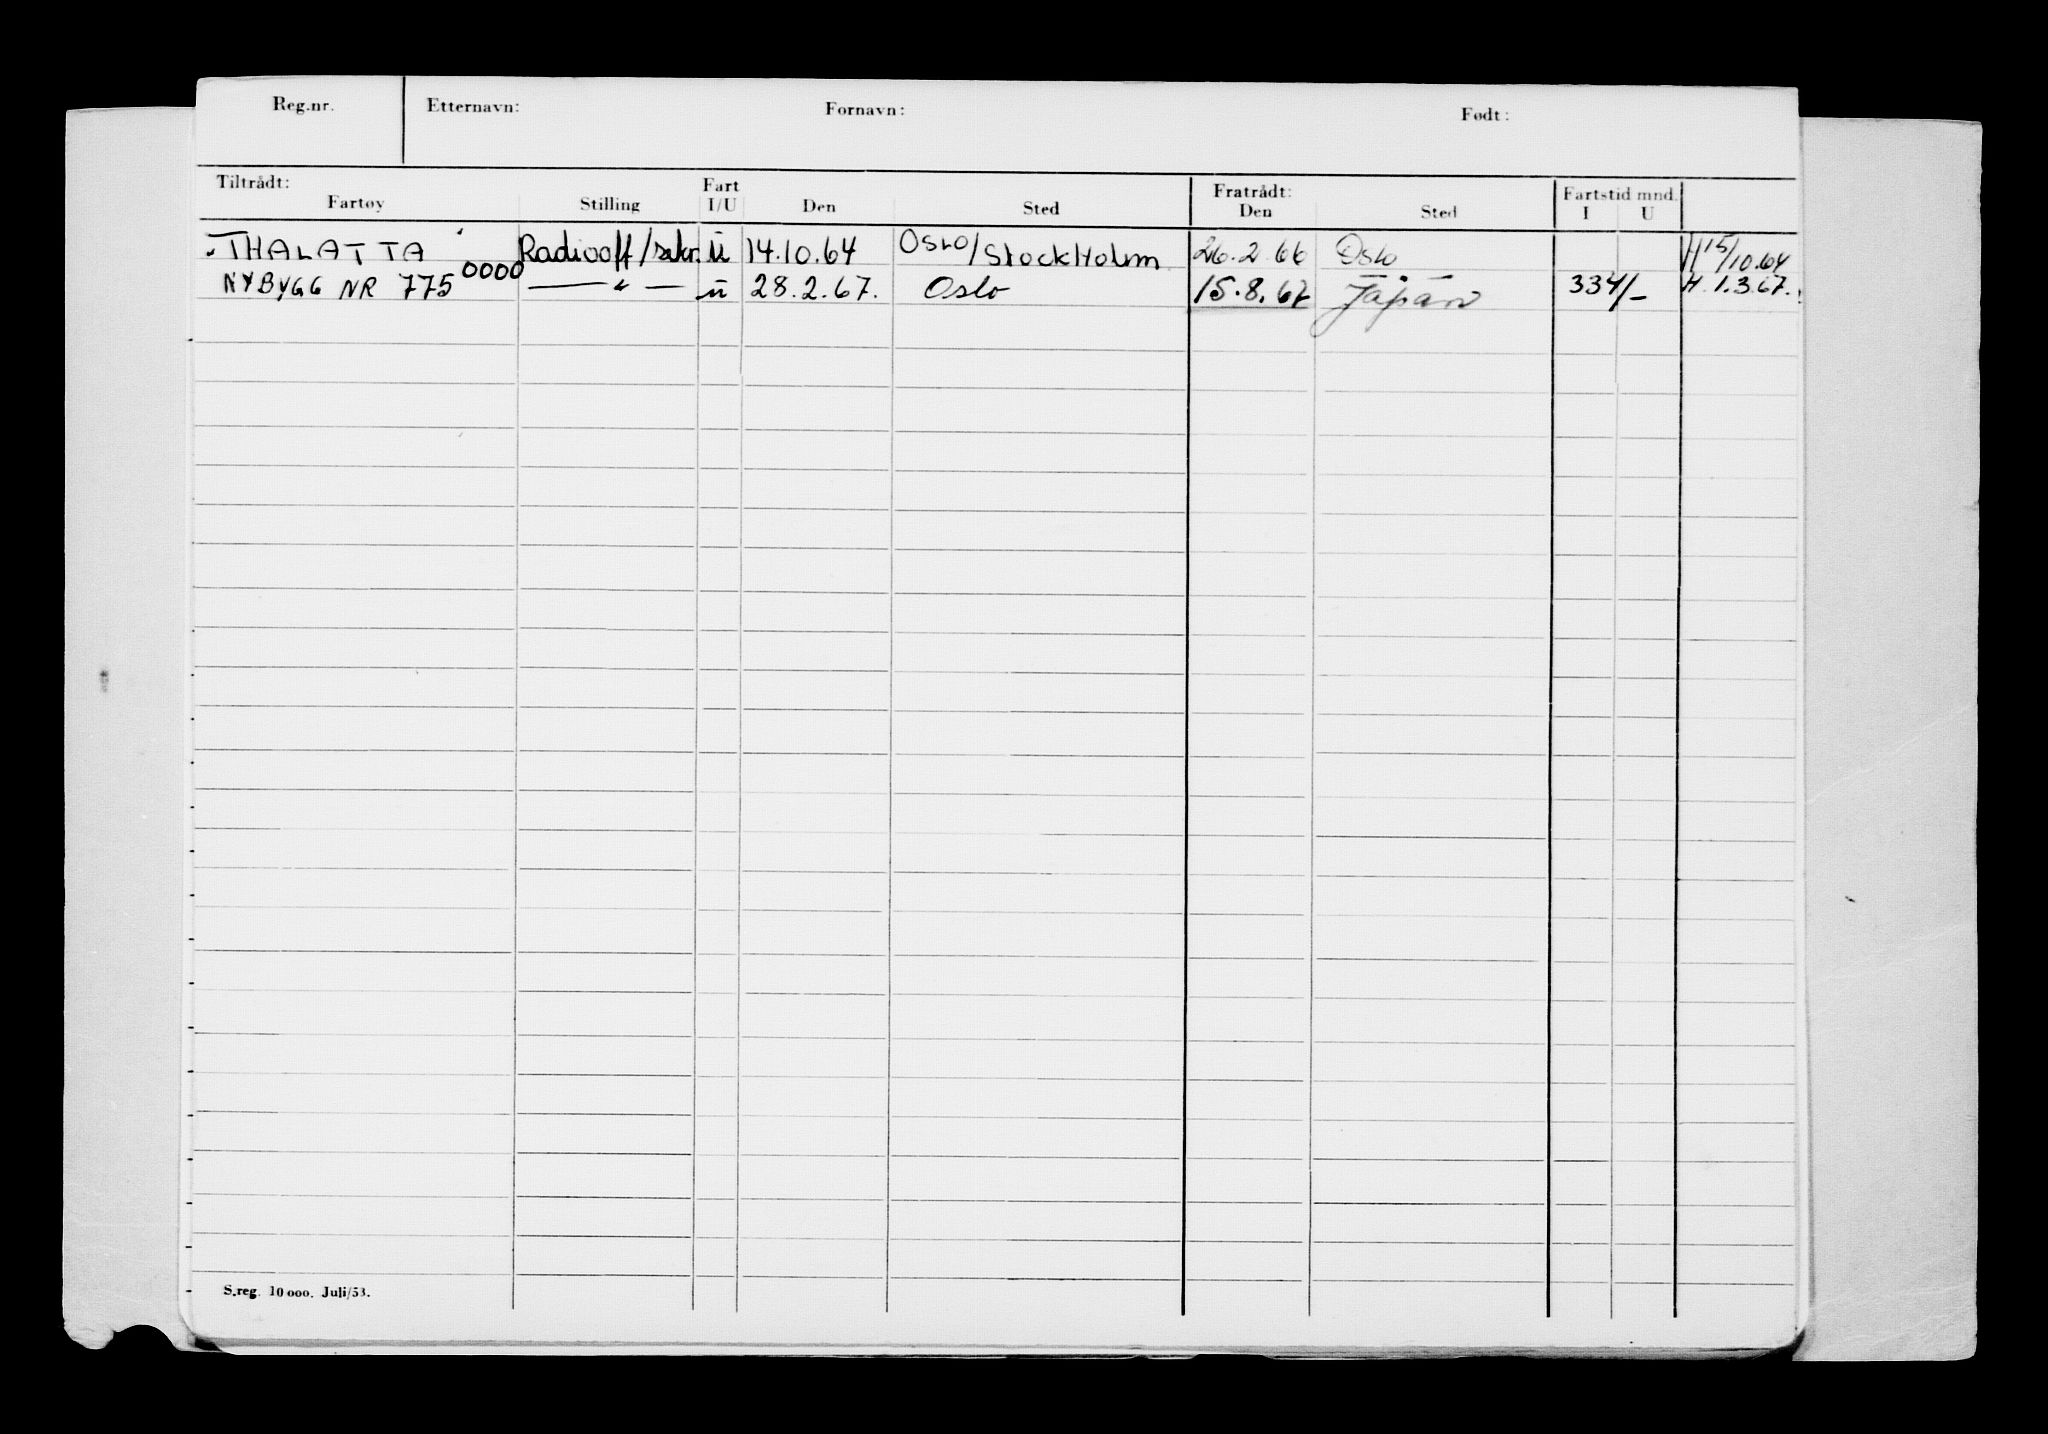 Reg.nr. Etternavn: Fornavn: Født:
Tiltrådt: Fart Fratrådt: Fartstid mnd.
Fartøy Stilling I/U Den Sted Den Sted I U
THALATTA Radiooff/sekr. U 14.10.64 Oslo/Stockholm 26.2.66 Oslo H 15/10.64
NYBYGG NR 775 0000 —"— U 28.2.67. Oslo 15.8.67 Japan 334/- H. 1.3.67.
S.reg. 10 000. Juli/53.